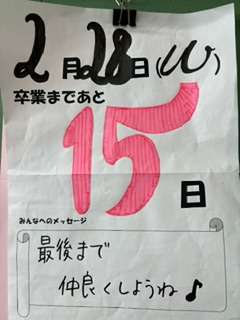 2月28日
卒業まであと
15日
みんなへのメッセージ
最後まで
仲良くしようね♪